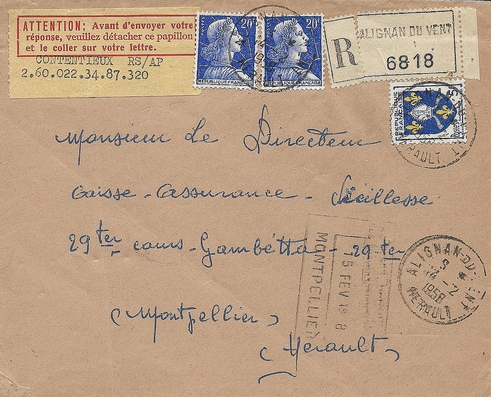 ATTENTION; Avant d'envoyer votre
réponse, veuillez détacher ce papillon
et le coller sur votre lettre.
CONTENTIEUX RS/AP
2.60.022.34.87.320
20F
20F
R
ALIGNAN DU VENT
6818
Monsieur Le Directeur
Caisse-Assurance-Vieillesse
29ter cours-Gambetta-29ter
(Montpellier)
(Hérault)
MONTPELLIER
15 FEV 19 8
ALIGNAN-DU-VENT
14-2
1958
HERAULT